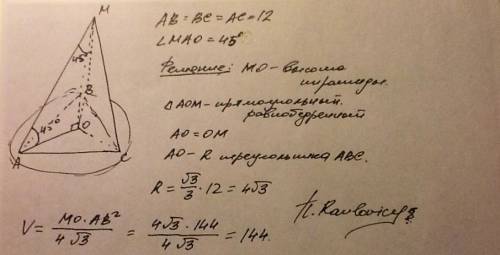 AB = BC = AC = 12
∠MAO = 45°
Решение: MO – высота
пирамиды.
△AOM – прямоугольный.
равнобедренный
AO = OM
AO – R треугольника ABC.
R = √3/3 · 12 = 4√3
V = MO · AB²/4√3 = 4√3 · 144/4√3 = 144.
M
45°
B
45°
O
A
C